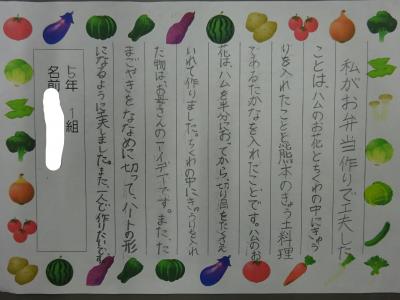 私がお弁当作りで工夫した
ことは、ハムのお花とちくわの中にきゅう
りを入れたことと熊本のきょう土料理
であるたかなを入れたことです。ハムのお
花は、ハムを半分におってから、切り目をたくさん
いれて作りました。ちくわの中にきゅうりを入れ
た物は、お母さんのアイデアです。また、た
まごやきをななめに切って、ハートの形
になるように工夫しました。また一人で作りたいです。
5年 1組
名前